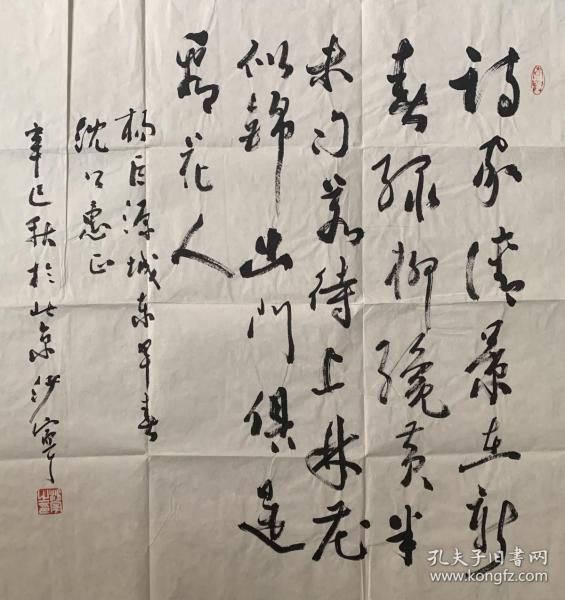 詩家清景在新
春绿柳纔黄半
未匀若待上林花
似錦出門俱是
看花人
楊巨源城東早春
沈公惠正
辛巳秋於北京沙寧
孔夫子旧书网
www.kongfz.com